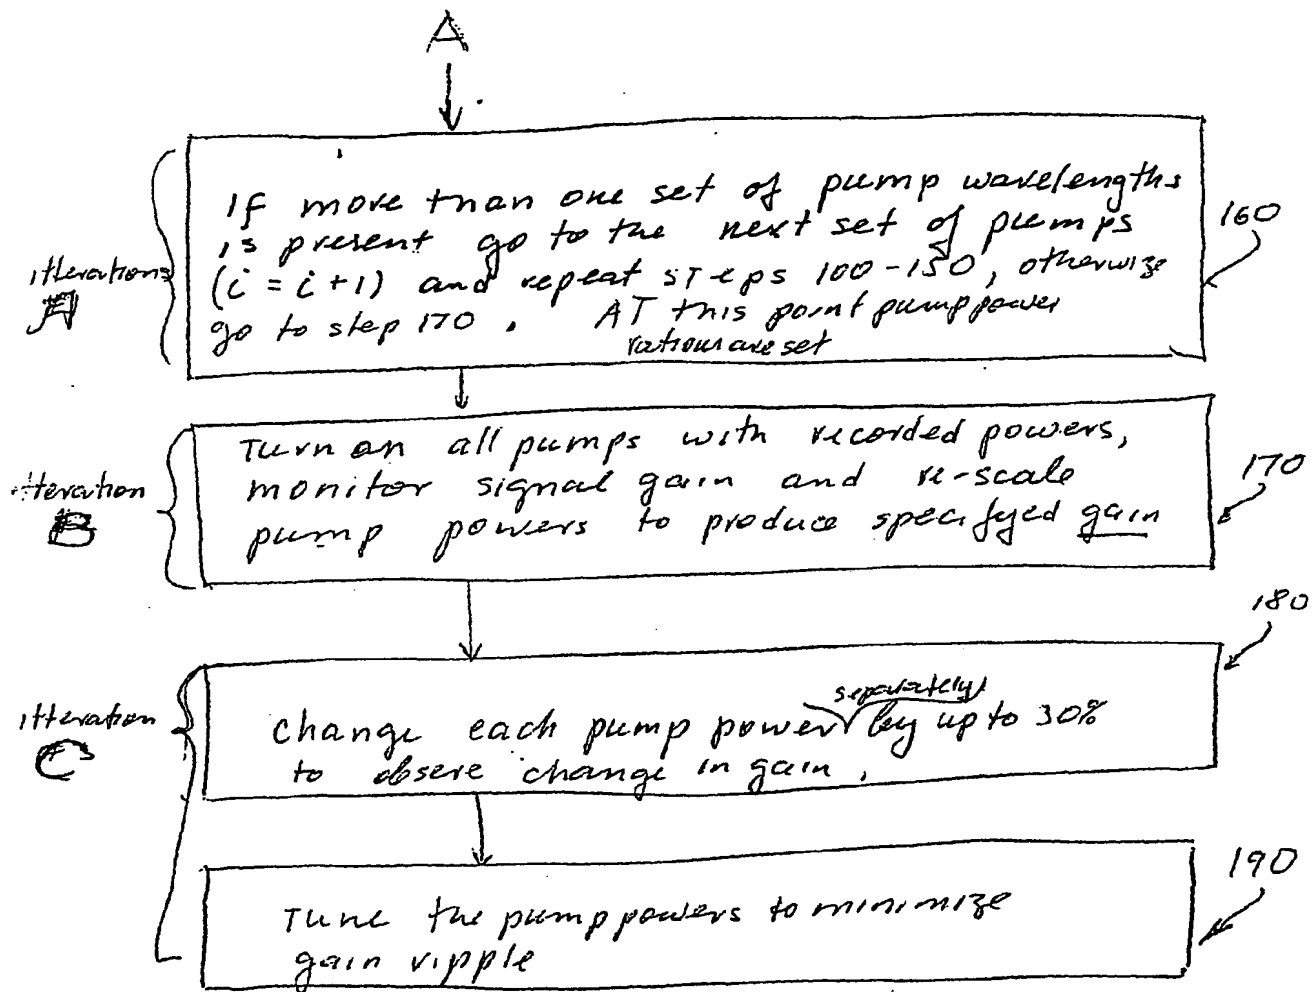 A
If more than one set of pump wavelengths
is present go to the next set of pumps
(i = i+1) and repeat steps 100-150, otherwize
go to step 170. AT this point pump power
are set
160
itterations
A
Turn on all pumps with recorded powers,
monitor signal gain and re-scale
pump powers to produce specifyed gain
170
itteration
B
180
separately
change each pump power by up to 30%
to obsere change in gain.
itteration
C
Tune the pump powers to minimize
gain ripple
190